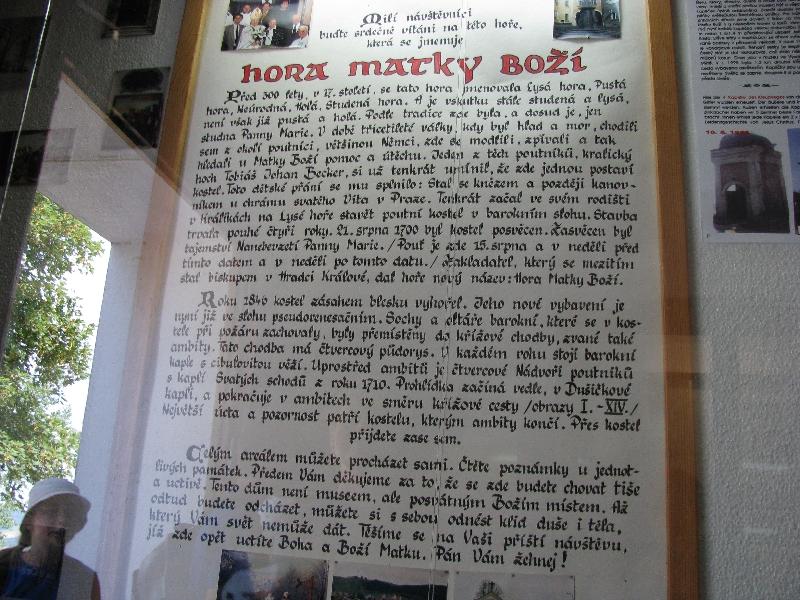 Milí návštěvníci
buďte srdečně vítáni na této hoře,
která se jmenuje
HORA MATKY BOŽÍ
Před 300 lety, v 17. století, se tato hora jmenovala Lysá hora, Pustá
hora, Neúrodná, Holá, Studená hora. A je vskutku stále studená a lysá,
není však již pustá a holá. Podle tradice zde byla, a dosud je, jen
studna Panny Marie. V době třicetileté války, kdy byl hlad a mor, chodili
sem z okolí poutníci, většinou Němci, zde se modlili, zpívali a tak
hledali u Matky Boží pomoc a útěchu. Jeden z těch poutníků, kralický
hoch Tobiáš Johan Becker, si už tenkrát umínil, že zde jednou postaví
kostel. Toto dětské přání se mu splnilo: Stal se knězem a později kanov-
níkem u chrámu svatého Víta v Praze. Tenkrát začal ve svém rodišti
v Králíkách na Lysé hoře stavět poutní kostel v barokním slohu. Stavba
trvala pouhé čtyři roky. 21. srpna 1700 byl kostel posvěcen. Zasvěcen byl
tajemství Nanebevzetí Panny Marie. /Pouť je zde 15. srpna a v neděli před
tímto datem a v neděli po tomto datu./ Zakladatel, který se mezitím
stal biskupem v Hradci Králové, dal hoře nový název: Hora Matky Boží.
Roku 1846 kostel zásahem blesku vyhořel. Jeho nové vybavení je
nyní již ve slohu pseudorenesančním. Sochy a oltáře barokní, které se v kos-
tele při požáru zachovaly, byly přemístěny do křížové chodby, zvané také
ambity. Tato chodba má čtvercový půdorys. V každém rohu stojí barokní
kaple s cibulovitou věží. Uprostřed ambitů je čtvercové Nádvoří poutníků
s kaplí Svatých schodů z roku 1710. Prohlídka začíná vedle, v Dušičkové
kapli, a pokračuje v ambitech ve směru křížové cesty /obrazy I.-XIV./
Největší úcta a pozornost patří kostelu, kterým ambity končí. Přes kostel
přijdete zase sem.
Celým areálem můžete procházet sami. Čtěte poznámky u jednot-
livých památek. Předem Vám děkujeme za to, že se zde budete chovat tiše
a uctivě. Tento dům není museem, ale posvátným Božím místem. Až
odtud budete odcházet, můžete si s sebou odnést klid duše i těla,
který Vám svět nemůže dát. Těšíme se na Vaši příští návštěvu,
již zde opět uctíte Boha a Boží Matku. Pán Vám žehnej!